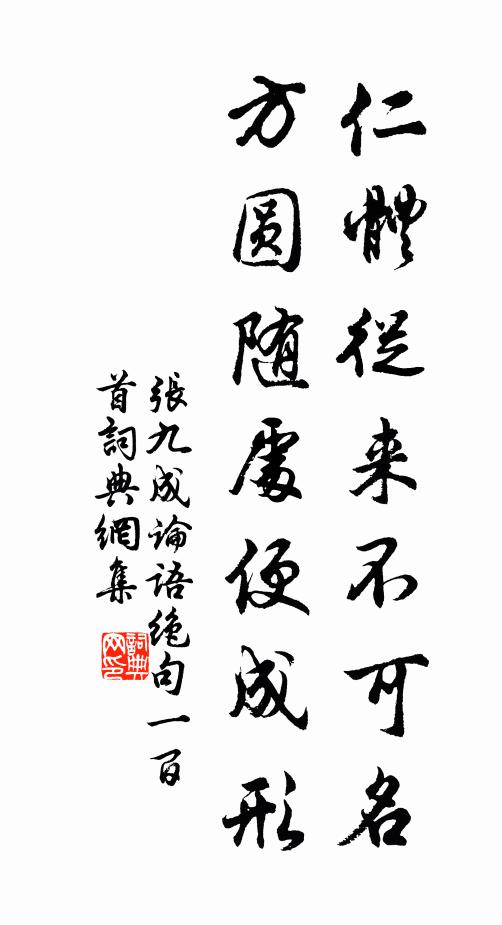 仁體從来不可名
方圆随處便成形
張九成論語绝句一百
首詞典網集
詞典
网印